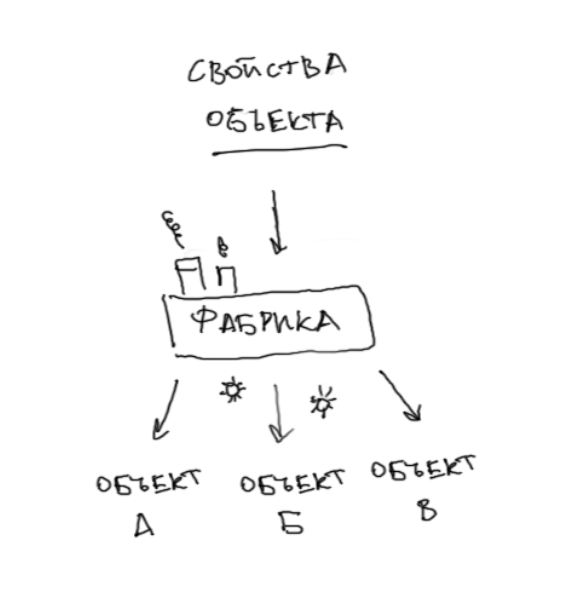 СВОЙСТВА
ОБЪЕКТА
ФАБРИКА
ОБЪЕКТ
А
ОБЪЕКТ
Б
ОБЪЕКТ
В